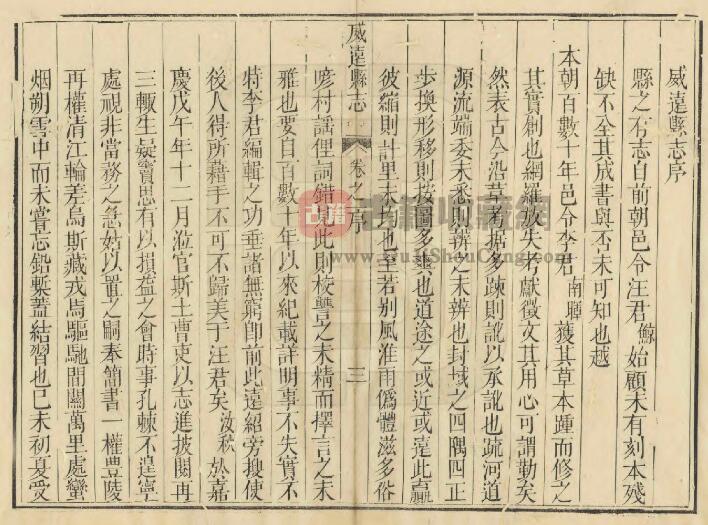 威遠縣志序
縣之有志自前朝邑令汪君鯨始顧未有刻本殘
缺不全其成書與否未可知也越
本朝百數十年邑令李君南暉獲其草本踵而修之
其實創也網羅放失考獻徵文其用心可謂勤矣
然表古今沿革考据多踈則訛以承訛也疏河道
源流端委未悉則辨之未辨也封域之四隅四正
步換形移則按圖多爽也道途之或近或遠此贏
彼縮則計里未均也至若别風淮雨僞體滋多俗
諺村謡俚詞錯出此則校讐之未精而擇言之未
雅也要自百數十年以來紀載詳明事不失實不
特李君編輯之功垂諸無窮卽前此遠紹旁搜使
後人得所藉手不可不歸美于汪君矣汝秋於嘉
慶戊午年十二月涖官斯土曹吏以志進披閱再
三輙生疑竇思有以損益之會時事孔棘不遑寧
處視非當務之急姑以置之嗣奉簡書一權豊陵
再權清江輪差烏斯藏戎馬驅馳間關萬里處蠻
烟朔雲中而未嘗忘鉛槧蓋結習也巳未初夏受
威遠縣志
卷之一序
三
古籍
书籍收藏网
www.YuJiShouCang.com